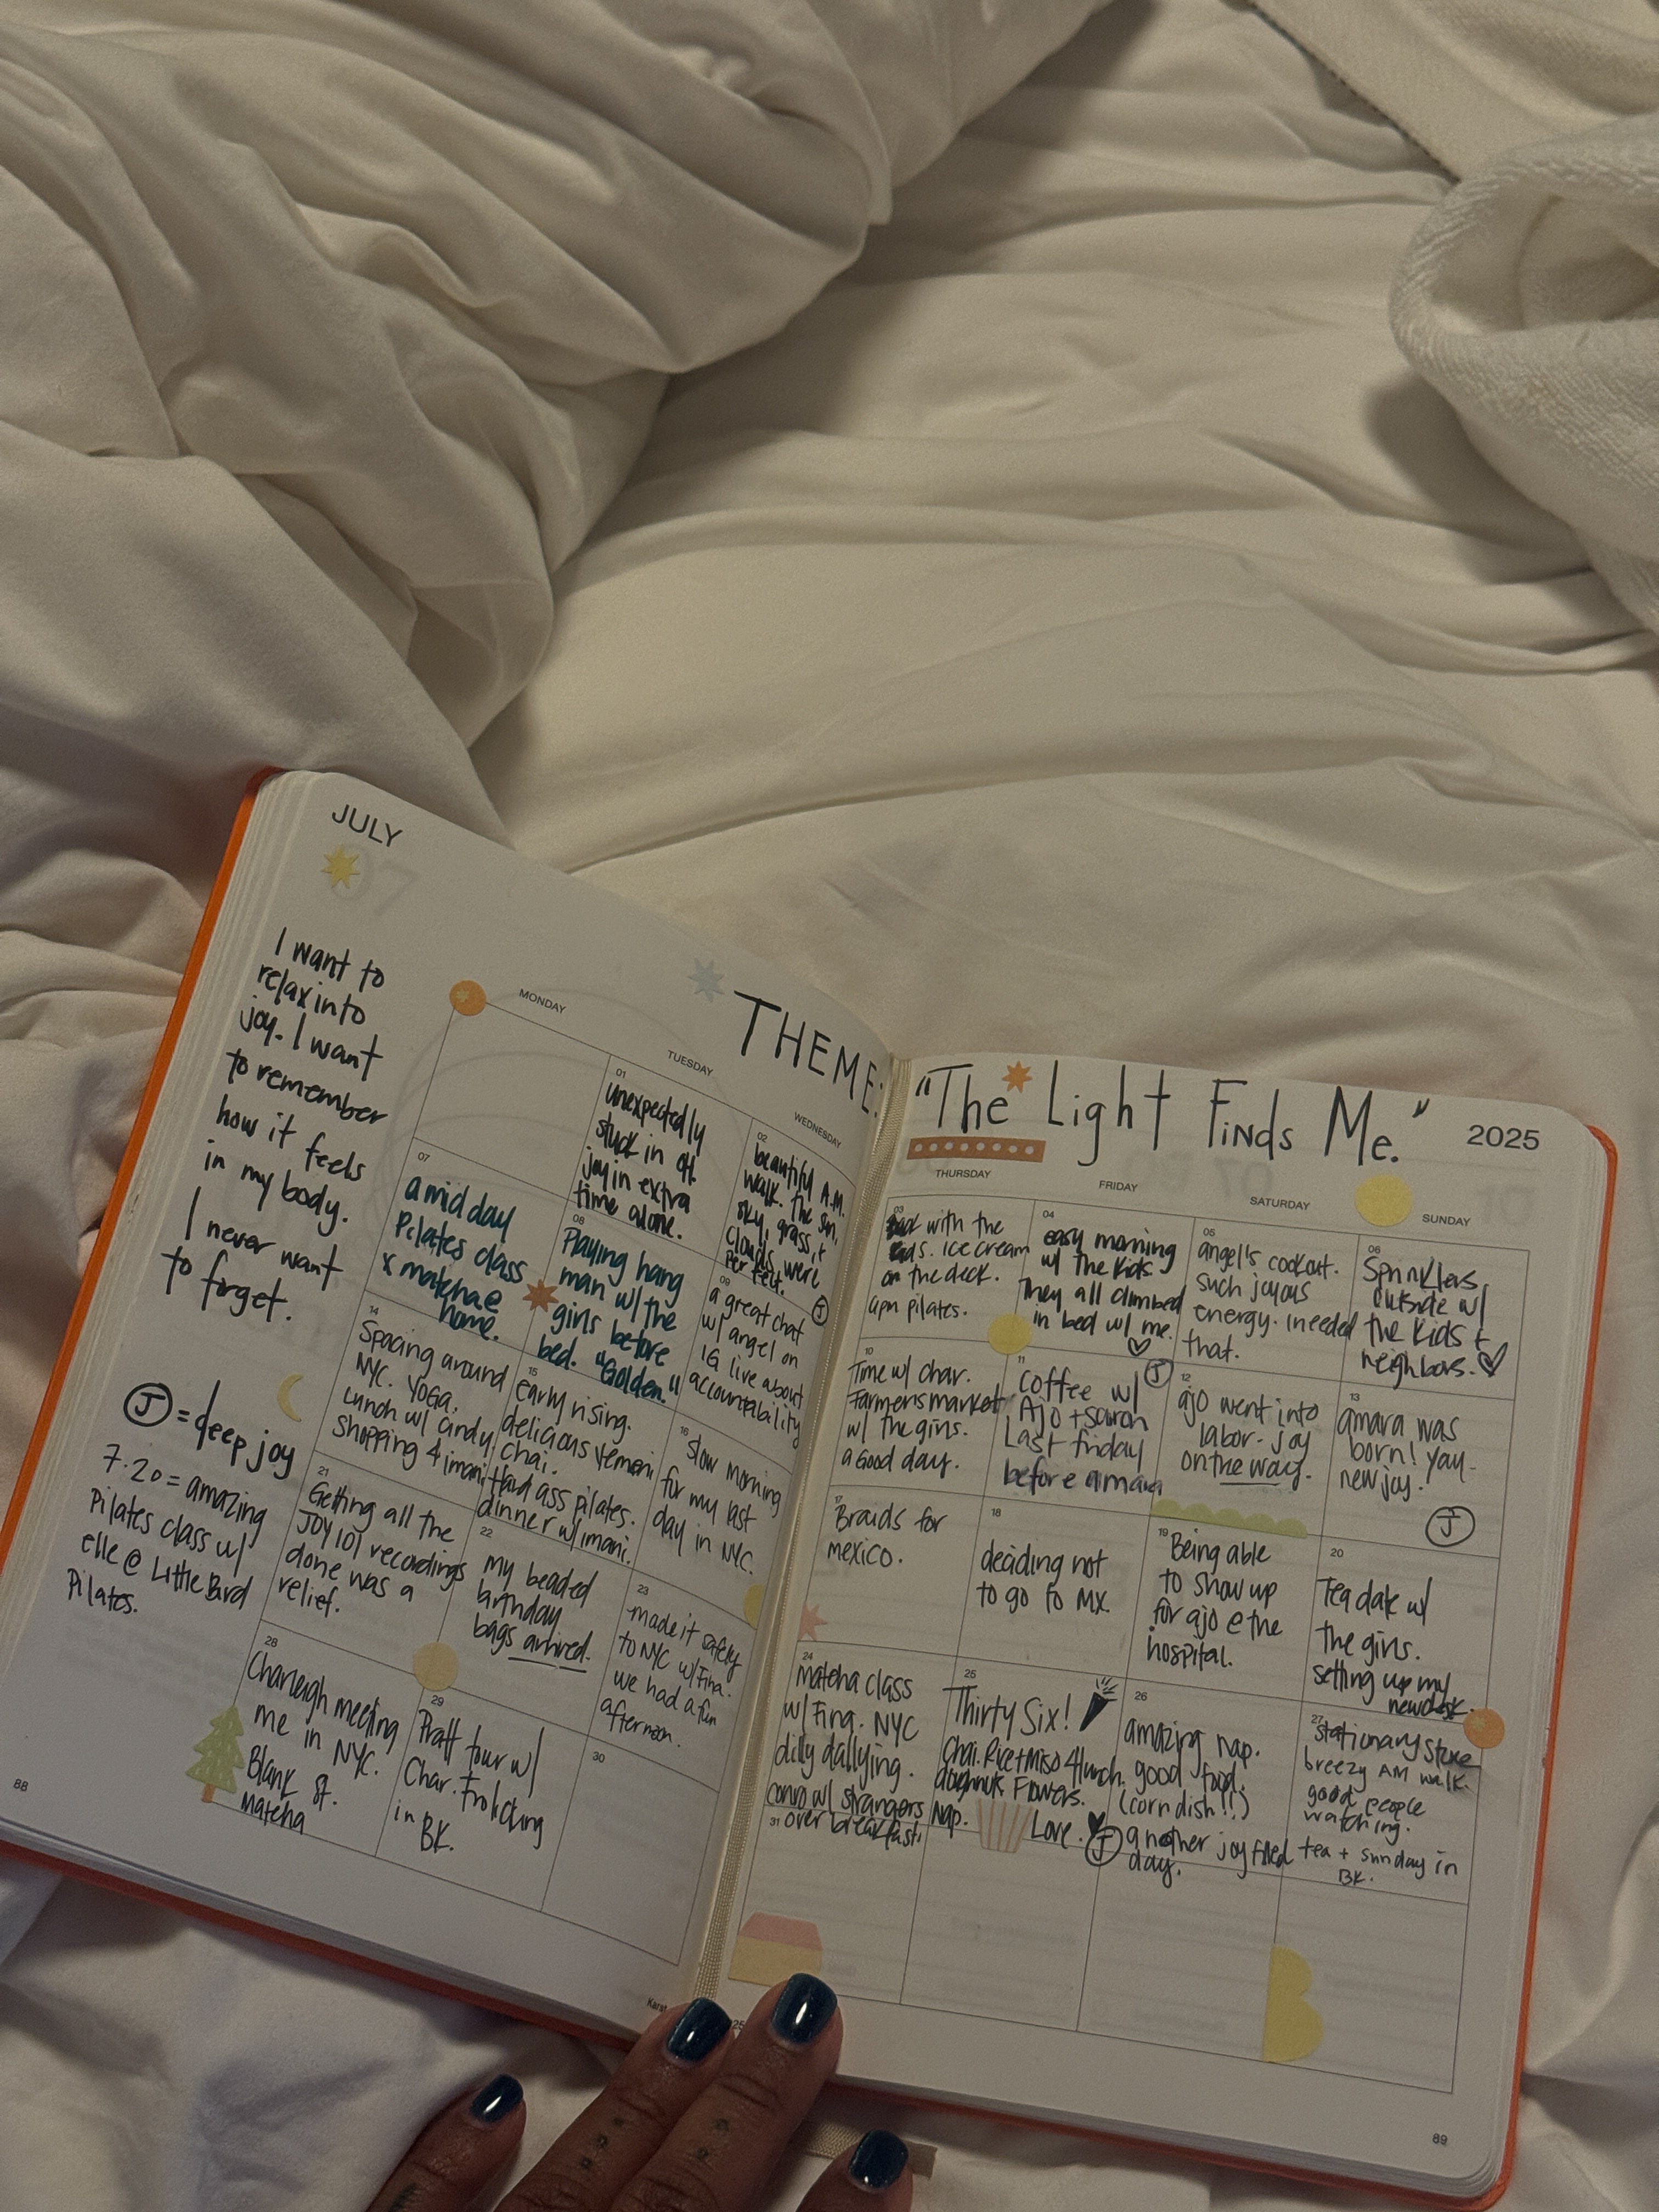 JULY
07
I want to
relax into
joy. I want
to remember
how it feels
in my body.
I never want
to forget.
J = deep joy
7.20 = amazing
Pilates class w/
elle @ Little Bird
Pilates.
88
THEME:
MONDAY
TUESDAY
WEDNESDAY
01
unexpectedly
stuck in
joy in extra
time alone.
02
beautiful A.M.
walk. the sun,
sky, grass, +
clouds were
perfect.
J
07
a mid day
Pilates class
x matcha @
home.
08
Playing hang
man w/ the
girls before
bed. "Golden."
09
a great chat
w/ angel on
IG live about
accountability
14
Spacing around
NYC. YOGA.
Lunch w/ cindy.
Shopping 4 imani
15
early rising.
delicious Yemeni
chai.
Hard ass pilates.
dinner w/ imani.
16
slow morning
for my last
day in NYC.
21
Getting all the
JOY 101 recordings
done was a
relief.
22
my beaded
birthday
bags arrived.
23
made it safely
to NYC w/
we had a fun
afternoon.
28
Charleigh meeting
me in NYC.
Blank st.
matcha
29
Pratt tour w/
Char. Frolicking
in BK.
30
"The Light Finds Me."
2025
THURSDAY
FRIDAY
SATURDAY
SUNDAY
03
with the
ice cream
on the deck.
pilates.
04
easy morning
w/ the kids
They all climbed
in bed w/ me.
05
angel's cookout.
such joyous
energy. I needed
that.
06
Sprinklers
outside w/
the kids +
neighbors.
10
Time w/ char.
Farmers market
w/ the girls.
a Good day.
11
J
coffee w/
Ajo + saron
Last friday
before amara
12
ajo went into
labor - joy
on the way.
13
amara was
born! Yay -
new joy.
J
17
Braids for
mexico.
18
deciding not
to go to MX.
19
Being able
to show up
for ajo @ the
hospital.
20
Tea date w/
the girls.
setting up my
new desk.
24
matcha class
w/ NYC
dilly dallying.
convo w/ strangers
over breakfast!
25
Thirty Six!
Chai. Rice + Miso 4 lunch.
doughnuts. Flowers.
Nap.
Love.
J
26
amazing nap.
good food.
(corn dish!!)
another joy filled
day.
27
stationary store
breezy AM walk.
good people
watching.
tea + sunday in
BK.
31
89